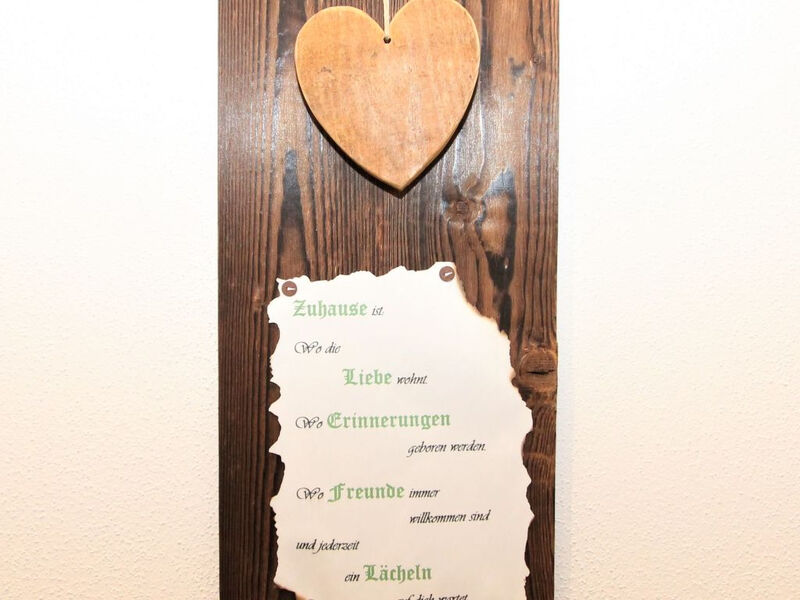 Zuhause ist:
Wo die
Liebe wohnt.
Wo Erinnerungen
geboren werden.
Wo Freunde immer
willkommen sind
und jederzeit
ein Lächeln
auf dich wartet.